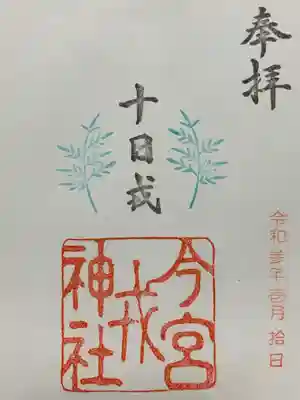 奉拝
十日戎
今宮戎神社
令和参年壱月拾日